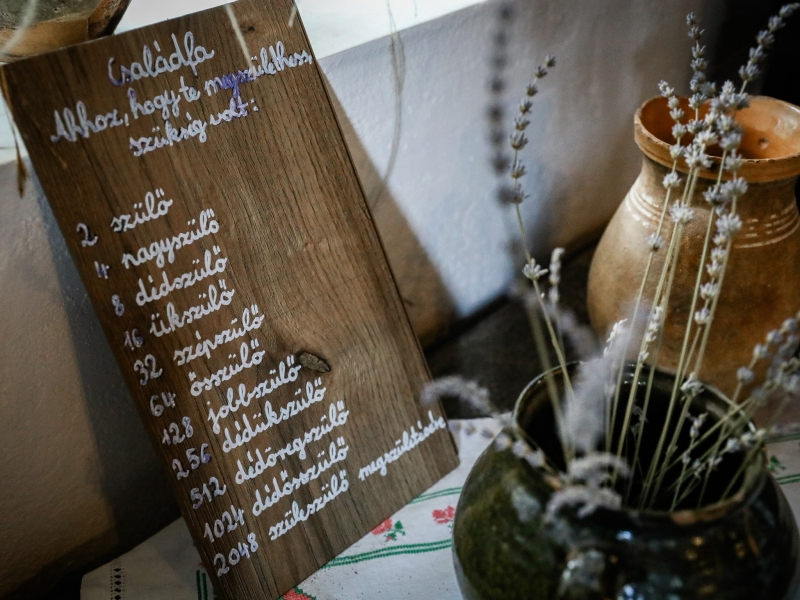 Családfa
Ahhoz, hogy te megszülethess
szükség volt:
2 szülő
4 nagyszülő
8 dédszülő
16 ükszülő
32 szépszülő
64 ősszülő
128 jobbszülő
256 dédükszülő
512 dédöregszülő
1024 dédősszülő
2048 szüleszülő megszületésére